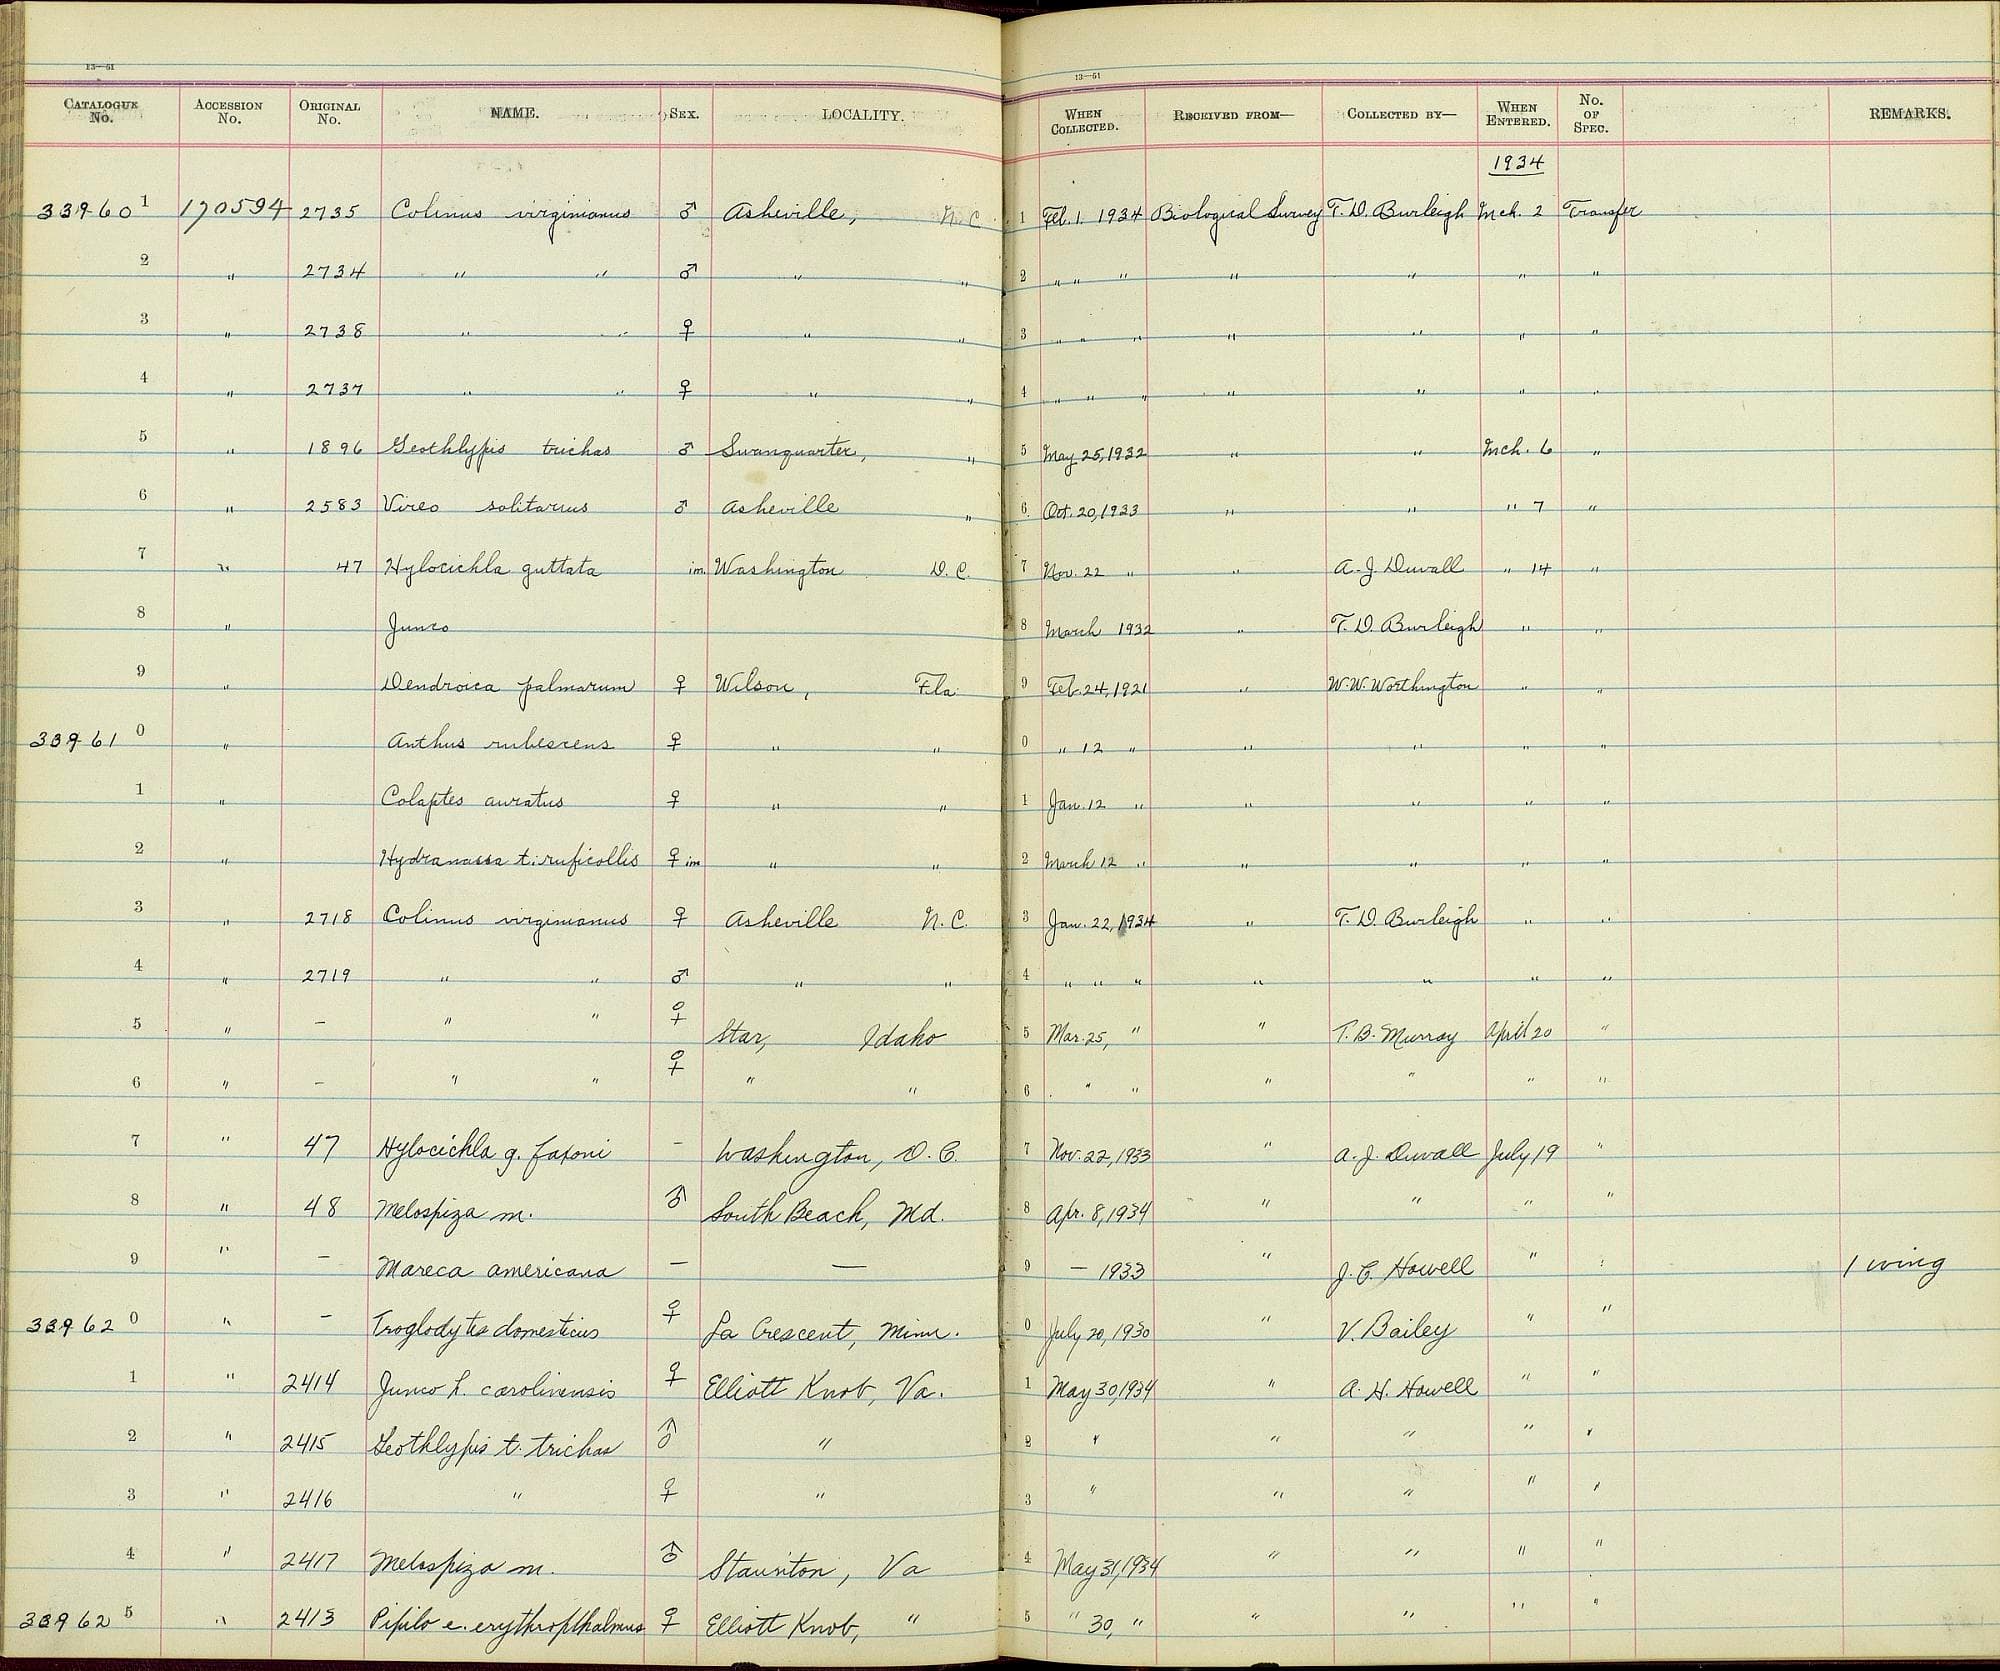 13—51 13—51
CATALOGUE No. ACCESSION No. ORIGINAL No. NAME. SEX. LOCALITY. WHEN COLLECTED. RECEIVED FROM— COLLECTED BY— WHEN ENTERED. No. OF SPEC. REMARKS.
1934
33960 1 170594 2735 Colinus virginianus ♂ Asheville, N.C. 1 Feb. 1. 1934 Biological Survey T. D. Burleigh Mch. 2 Transfer
2 " 2734 " " ♂ " " 2 " " " " " " "
3 " 2738 " " ♀ " " 3 " " " " " " "
4 " 2737 " " ♀ " " 4 " " " " " " "
5 " 1896 Geothlypis trichas ♂ Swanquarter, " 5 May 25, 1932 " " Mch. 6 "
6 " 2583 Vireo solitarius ♂ Asheville " 6 Oct. 20, 1933 " " " 7 "
7 " 47 Hylocichla guttata im. Washington D.C. 7 Nov. 22 " " A. J. Duvall " 14 "
8 " Junco 8 March 1932 " T. D. Burleigh " "
9 " Dendroica palmarum ♀ Wilson, Fla. 9 Feb. 24, 1921 " W. W. Worthington " "
33961 0 " Anthus rubescens ♀ " " 0 " 12 " " " " "
1 " Colaptes auratus ♀ " " 1 Jan. 12 " " " " "
2 " Hydranassa t. ruficollis ♀ im " " 2 March 12 " " " " "
3 " 2718 Colinus virginianus ♀ Asheville N.C. 3 Jan. 22, 1934 " T. D. Burleigh " "
4 " 2719 " " ♂ " " 4 " " " " " " "
5 " — " " ♀ Star, Idaho 5 Mar. 25, " " T. B. Murray April 20 "
6 " — " " ♀ " " 6 " " " " " "
7 " 47 Hylocichla g. faxoni — Washington, D.C. 7 Nov. 22, 1933 " A. J. Duvall July 19 "
8 " 48 Melospiza m. ♂ South Beach, Md. 8 Apr. 8, 1934 " " " "
9 " — Mareca americana — — 9 — 1933 " J. C. Howell " : 1 wing
33962 0 " — Troglodytes domesticus ♀ La Crescent, Minn. 0 July 20, 1930 " V. Bailey " "
1 " 2414 Junco h. carolinensis ♀ Elliott Knob, Va. 1 May 30, 1934 " A. H. Howell " "
2 " 2415 Geothlypis t. trichas ♂ " 2 " " " " "
3 " 2416 " ♀ " 3 " " " " "
4 " 2417 Melospiza m. ♂ Staunton, Va 4 May 31, 1934 " " " "
33962 5 " 2413 Pipilo e. erythrophthalmus ♀ Elliott Knob, " 5 " 30, " " " " "